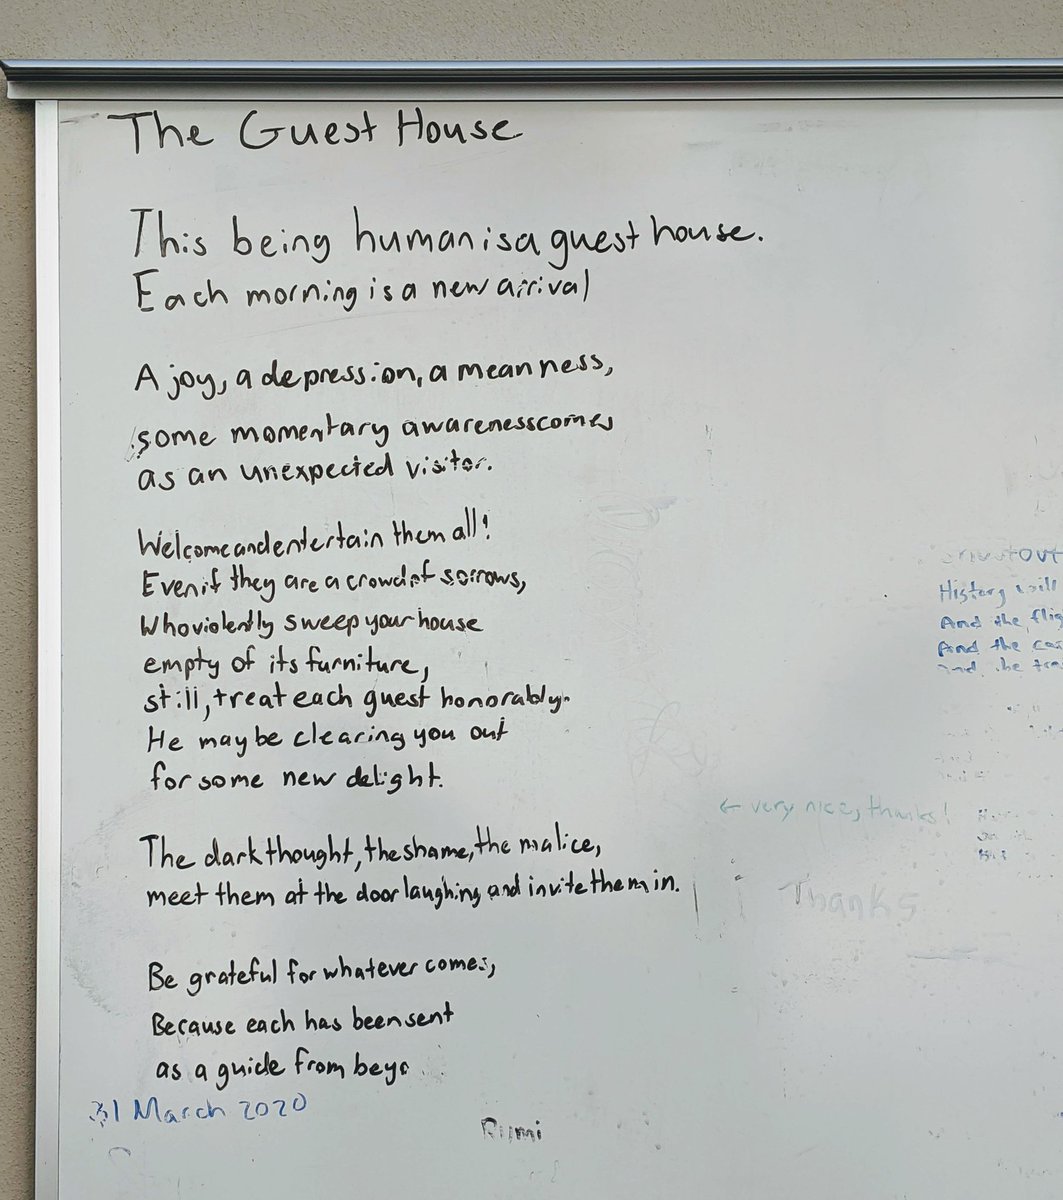 The Guest House
This being human is a guest house.
Each morning is a new arrival
A joy, a depression, a meanness,
some momentary awareness comes
as an unexpected visitor.
Welcome and entertain them all!
Even if they are a crowd of sorrows,
Who violently sweep your house
empty of its furniture,
still, treat each guest honorably.
He may be clearing you out
for some new delight.
The dark thought, the shame, the malice,
meet them at the door laughing and invite them in.
Be grateful for whatever comes,
Because each has been sent
as a guide from beyo
31 March 2020
Rumi
History will
And the flig
And the
and the
← very nice, thanks!
Thanks